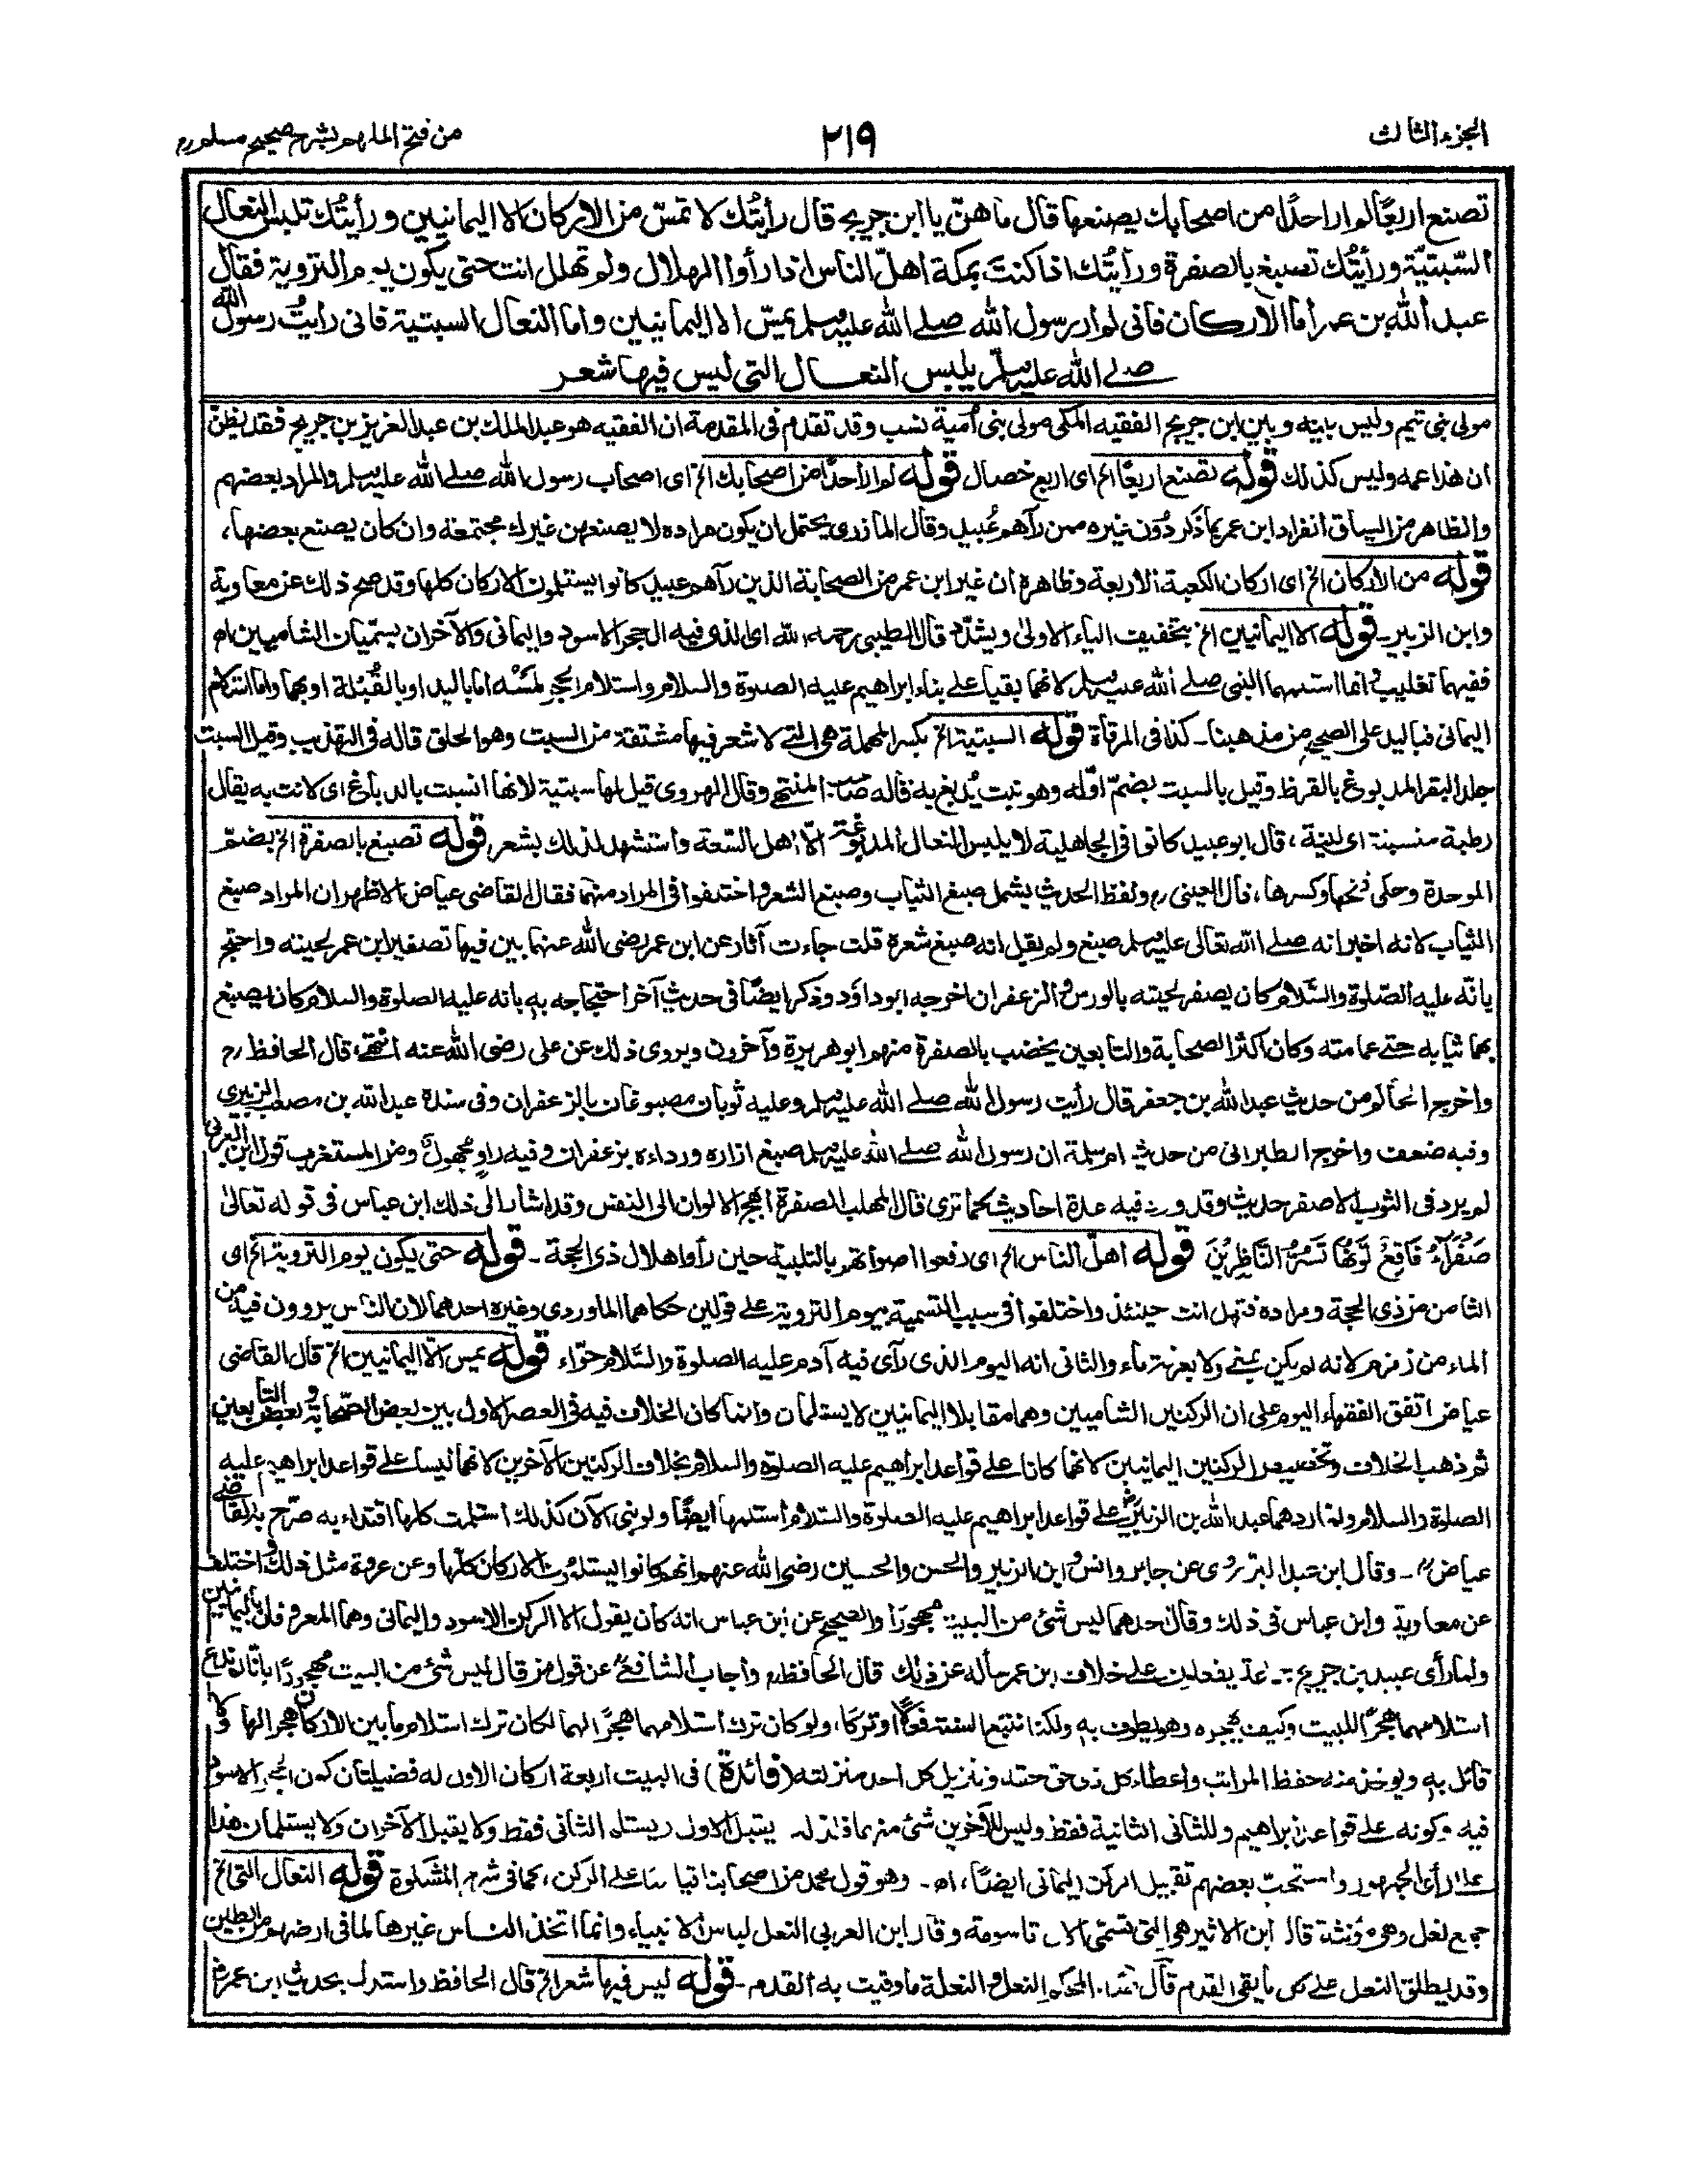 الجزء الثالث
٢١٩
من فتح الملهم بشرح صحيح مسلم رم
تصنع اربعًا لم ار احدًا من اصحابك يصنعها قال ما هنّ يا ابن جريج قال رأيتُك لا تمسّ من الاركان الا اليمانيين ورأيتُك تلبس النعال
السّبتيّة ورأيتُك تصبغ بالصفرة ورأيتُك اذا كنتَ بمكة اهلّ الناس اذا رأوا الهلال ولم تهلل انت حتى يكون يوم التروية فقال
عبد الله بن عمر أما الاركان فانى لم ار رسول الله صلى الله عليه وسلم يمسّ الا اليمانيين واما النعال السبتية فانى رأيتُ رسول الله
صلى الله عليه وسلم يلبس النعال التى ليس فيها شعر
مولى بنى تيم وليس بينه وبين ابن جريج الفقيه المكى مولى بنى أمية نسب وقد تقدم فى المقدمة ان الفقيه هو عبد الملك بن عبد العزيز بن جريج فقد يظنّ
ان هذا عمه وليس كذلك قوله تصنع اربعًا الخ اى اربع خصال قوله لم ار احدًا من اصحابك الخ اى اصحاب رسول الله صلى الله عليه وسلم والمراد بعضهم
والظاهر من السياق انفراد ابن عمر بما ذَكر دُون غيره ممن رآهم عُبيد وقال المازرى يحتمل ان يكون مراده لا يصنعهن غيرك مجتمعة وان كان يصنع بعضها،
قوله من الاركان الخ اى اركان الكعبة الاربعة وظاهره ان غير ابن عمر من الصحابة الذين رآهم عبيد كانوا يستلمون الاركان كلها وقد صح ذلك عن معاوية
وابن الزبير۔ قوله الا اليمانيين الخ بتخفيف الياء الاولىٰ ويشدّد قال الطيبى رحمه الله اى الذى فيه الحجر الاسود واليمانى والآخران يسمّيان الشاميين اه
ففيهما تغليب وانما استلمهما النبى صلى الله عليه وسلم لانهما بقيا على بناء ابراهيم عليه الصلوة والسلام واستلام الحجر لمسُه اما باليد او بالقُبلة او بهما واما استلام
اليمانى فباليد على الصحيح من مذهبنا۔ كذا فى المرقاة قوله السبتية الخ بكسر المهملة هى التى لا شعر فيها مشتقة من السبت وهو الحلق قاله فى التهذيب وقيل السبت
جلد البقر المدبوغ بالقرظ وقيل بالسبت بضمّ اوّله وهو نبت يُدبغ به قاله صاحب المنتهى وقال الهروى قيل لها سبتية لانها انسبتت بالدباغ اى لانت به يقال
رطبة منسبتة اى لينة، قال ابو عبيد كانوا فى الجاهلية لا يلبس النعال المدبوغة الّا اهل السّعة واستشهد لذلك بشعر قوله تصبغ بالصفرة الخ بضمّ
الموحدة وحكى فتحها وكسرها، قال العينى رم ولفظ الحديث يشمل صبغ الثياب وصبغ الشعر واختلفوا فى المراد منهما فقال القاضى عياض الاظهر ان المراد صبغ
الثياب لانه اخبر انه صلى الله تعالى عليه وسلم صبغ ولم يقل انه صبغ شعره قلت جاءت آثار عن ابن عمر رضى الله عنهما بين فيها تصفير ابن عمر لحيته واحتج
بانّه عليه الصّلوة والسّلام كان يصفر لحيته بالورس والزعفران اخرجه ابو داؤد وذكر ايضًا فى حديث آخر احتجاجه به بانه عليه الصلوة والسلام كان يصبغ
بهما ثيابه حتى عمامته وكان اكثر الصحابة والتابعين يخضب بالصفرة منهم ابو هريرة وآخرون ويروى ذلك عن على رضى الله عنه انتهى، قال الحافظ رم
واخرج الحاكم من حديث عبد الله بن جعفر قال رأيت رسول الله صلى الله عليه وسلم وعليه ثوبان مصبوغان بالزعفران وفى سنده عبد الله بن مصعب الزبيرى
وفيه ضعف واخرج الطبرانى من حديث ام سلمة ان رسول الله صلى الله عليه وسلم صبغ ازاره ورداءه بزعفران وفيه راوٍ مجهول ومن المستغرب قول ابن العربى
لم يرد فى الثوب الاصفر حديث وقد ورد فيه عدة احاديث كما ترى قال المهلب الصفرة ابهج الالوان الى النفس وقد اشار الى ذلك ابن عباس فى قوله تعالىٰ
صَفْرَآءُ فَاقِعٌ لَّوْنُهَا تَسُرُّ النَّاظِرِيْنَ قوله اهلّ الناس الخ اى رفعوا اصواتهم بالتلبية حين رأوا هلال ذى الحجة۔ قوله حتى يكون يوم التروية الخ اى
الثامن من ذى الحجة ومراده فتهل انت حينئذ واختلفوا فى سبب التسمية بيوم التروية على قولين حكاهما الماوردى وغيره احدهما لان الناس يروون فيه من
الماء من زمزم لانه لم يكن بمنى ولا بعرفة ماء والثانى انه اليوم الذى رآى فيه آدم عليه الصلوة والسّلام حوّاء قوله يمس الّا اليمانيين الخ قال القاضى
عياض اتفق الفقهاء اليوم على ان الركنين الشاميين وهما مقابلا اليمانيين لا يستلمان وانما كان الخلاف فيه فى العصر الاول بين بعض الصّحابة وبعض التابعين
ثم ذهب الخلاف وتخصيص الركنين اليمانيين لانهما كانا على قواعد ابراهيم عليه الصلوة والسلام بخلاف الركنين الآخرين لانهما ليسا على قواعد ابراهيم عليه
الصلوة والسلام ولما ردهما عبد الله بن الزبير على قواعد ابراهيم عليه الصلوة والسّلام استلمها ايضًا ولو بنى الآن كذلك استلمت كلها اقتداء به صرّح به القاضى
عياض۔ وقال ابن عبد البر روى عن جابر وانس وابن الزبير والحسن والحسين رضى الله عنهم انهم كانوا يستلمون الاركان كلّها وعن عروة مثل ذلك واختلف
عن معاوية وابن عباس فى ذلك وقال احدهما ليس شئ من البيت مهجورًا والصحيح عن ابن عباس انه كان يقول الا الركن الاسود واليمانى وهما المعروفان باليمانيين
ولما رأى عبيد بن جريج يفعلون على خلاف ابن عمر سأله عن ذلك قال الحافظ رم واجاب الشافعى عن قول من قال ليس شئ من البيت مهجورًا بانا لم ندع
استلامهما هجرًا للبيت وكيف يهجره وهو يطوف به ولكنا نتبع السنة فعلًا او تركًا، ولو كان ترك استلامهما هجرًا لهما لكان ترك استلام ما بين الاركان هجرًا لها ولا
قائل به ويوخذ منه حفظ المراتب واعطاء كل ذى حق حقه وتنزيل كل احد منزلته (فائدة) فى البيت اربعة اركان الاول له فضيلتان كون الحجر الاسود
فيه وكونه على قواعد ابراهيم وللثانى الثانية فقط وليس للآخرين شئ منهما فلذلك يقبل الاول ويستلم الثانى فقط ولا يقبل الآخران ولا يستلمان هذا
على رأى الجمهور واستحبّ بعضهم تقبيل الركن اليمانى ايضًا، اه۔ وهو قول محمد من اصحابنا قياسًا على الركن، كما فى شرح المشكوة قوله النعال التى الخ
جمع نعل وهى مؤنثة قال ابن الاثير هى التى تسمّى الآن تاسومة وقال ابن العربى النعل لباس الانبياء وانما اتخذ الناس غيرها لما فى ارضهم من الطين
وقد يطلق النعل على كل ما يقى القدم قال صاحب المحكم النعل والنعلة ما وقيت به القدم۔ قوله ليس فيها شعر الخ قال الحافظ واستدل بحديث ابن عمر